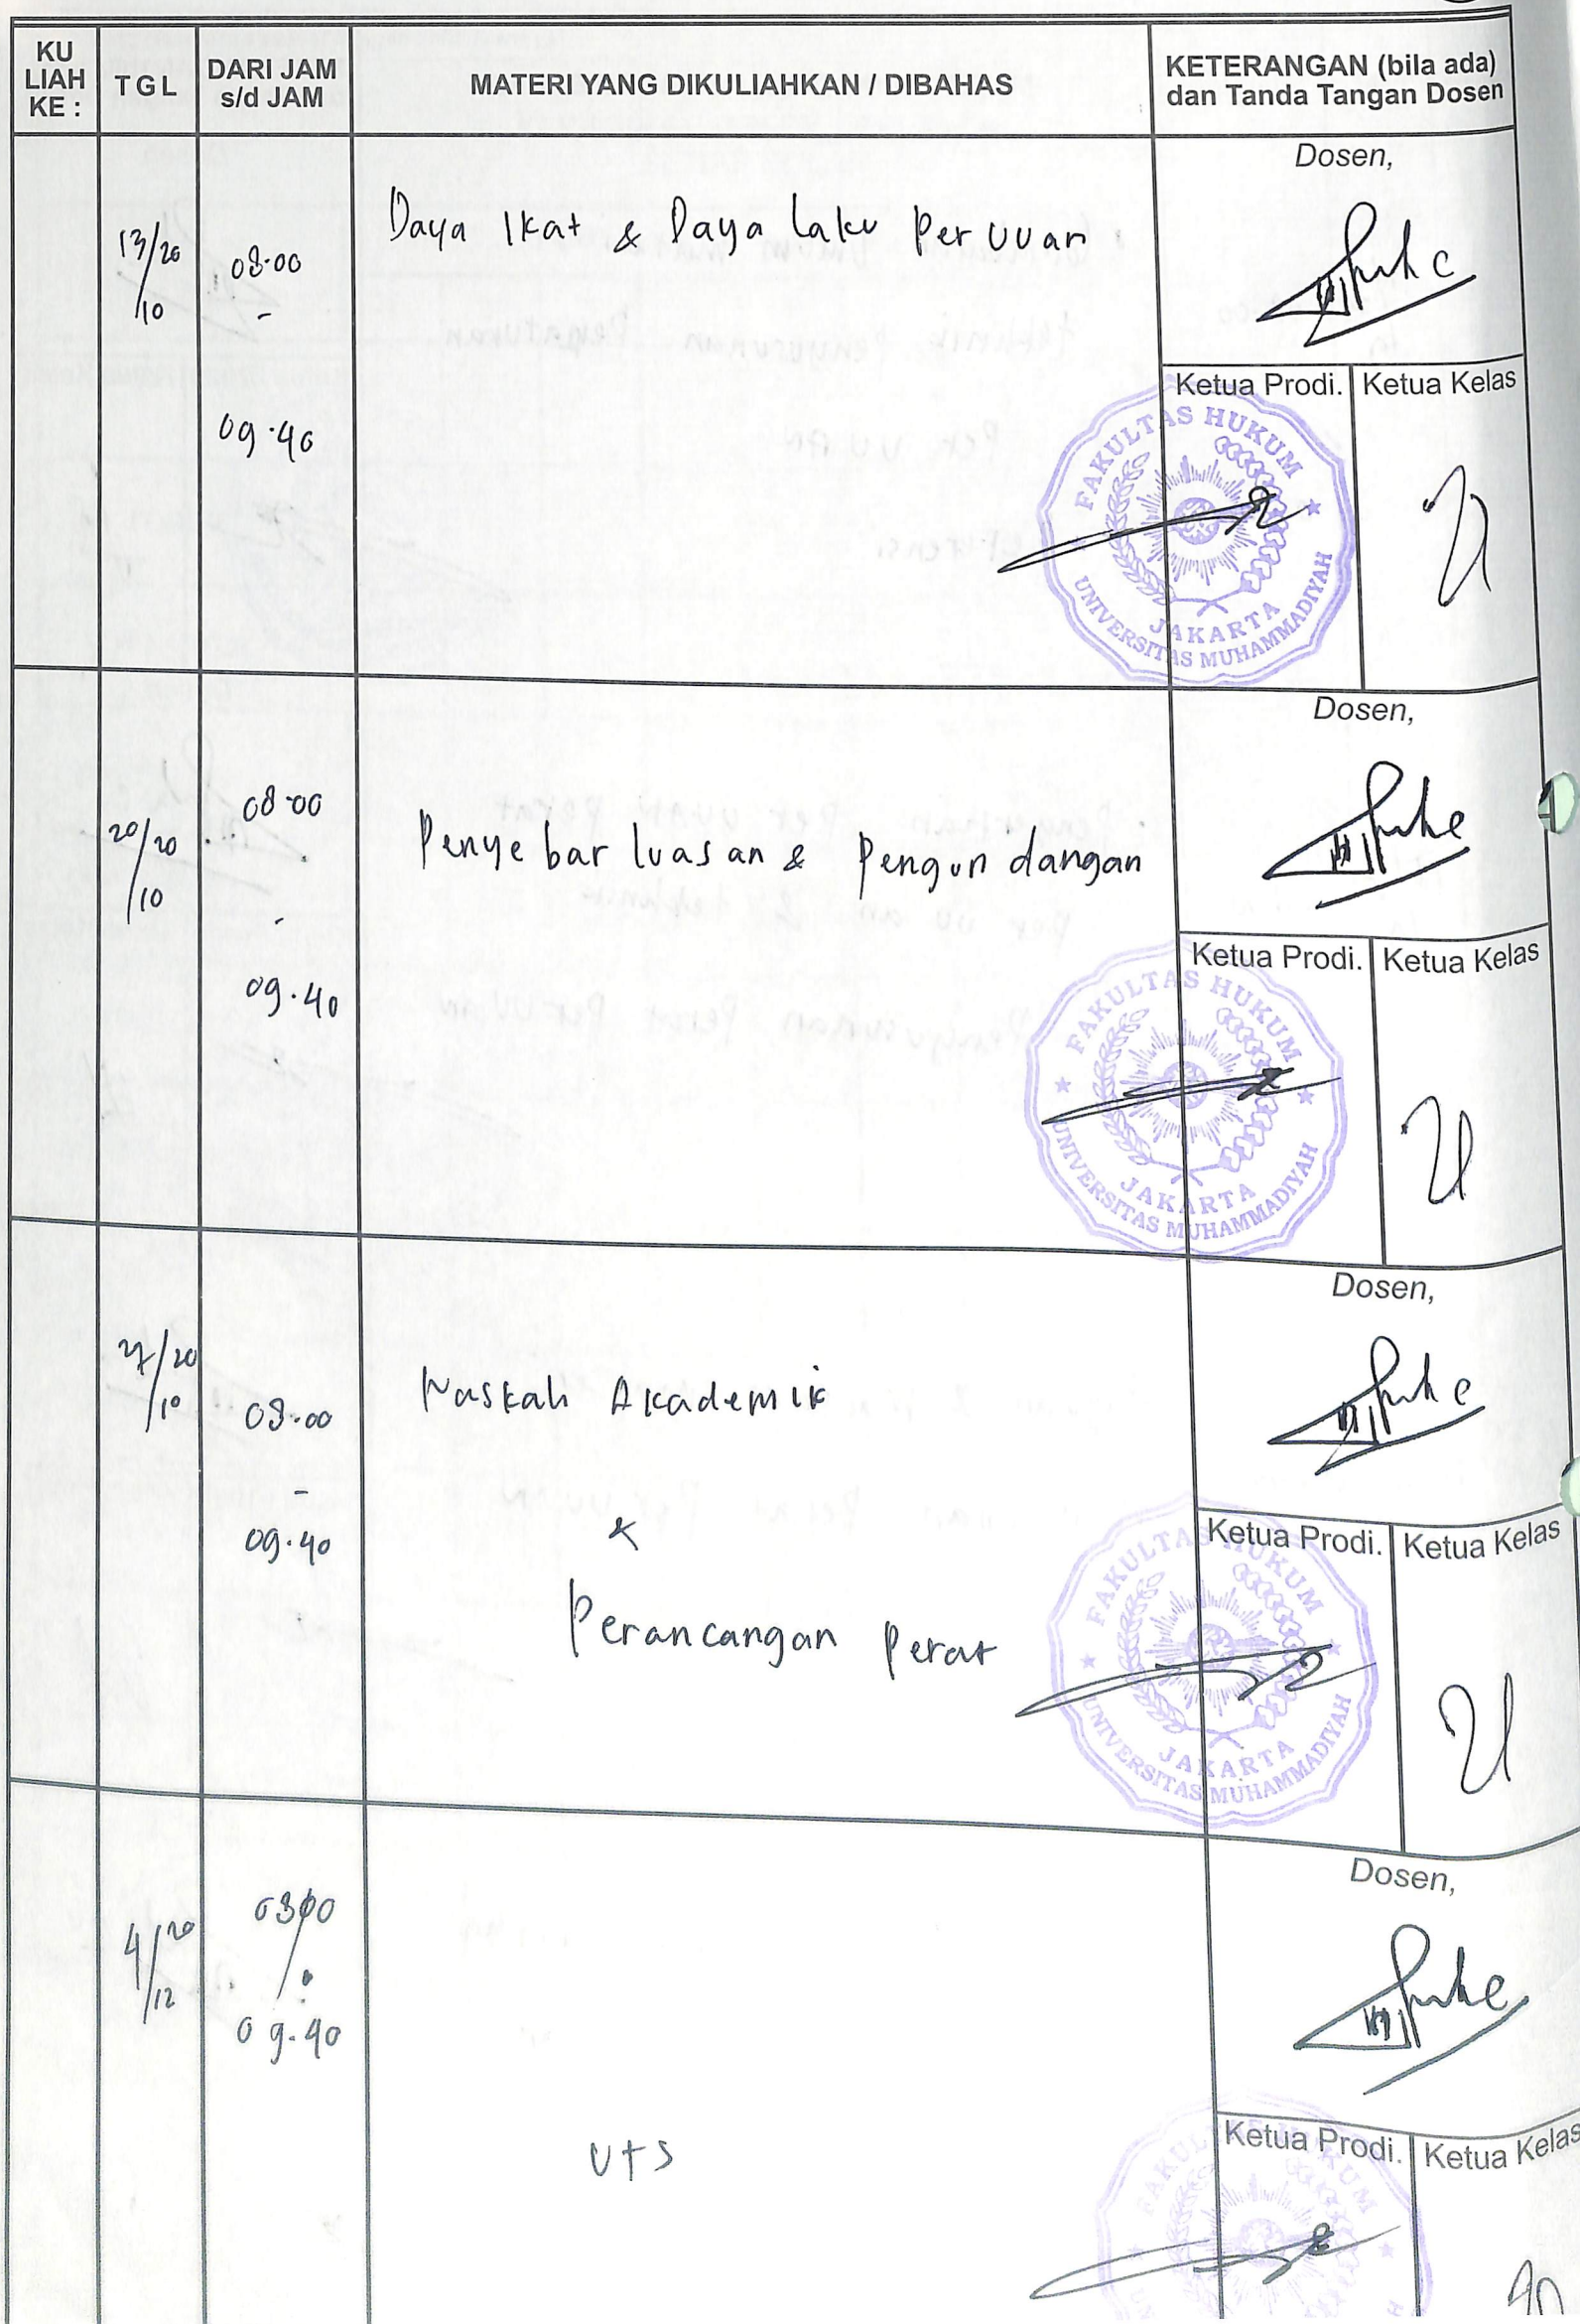 KU
LIAH
KE :
TGL
DARI JAM
s/d JAM
MATERI YANG DIKULIAHKAN / DIBAHAS
KETERANGAN (bila ada)
dan Tanda Tangan Dosen
13/20
/10
08.00
-
09.40
Daya Ikat & Daya laku Per UUan
Dosen,
Ketua Prodi.
Ketua Kelas
FAKULTAS HUKUM
UNIVERSITAS MUHAMMADIYAH
JAKARTA
20/20
/10
08.00
-
09.40
Penyebar luasan & Pengundangan
Dosen,
Ketua Prodi.
Ketua Kelas
FAKULTAS HUKUM
UNIVERSITAS MUHAMMADIYAH
JAKARTA
27/20
/10
08.00
-
09.40
Naskah Akademik
&
Perancangan Perat
Dosen,
Ketua Prodi.
Ketua Kelas
FAKULTAS HUKUM
UNIVERSITAS MUHAMMADIYAH
JAKARTA
4/20
/12
0800
09.40
UTS
Dosen,
Ketua Prodi.
Ketua Kelas